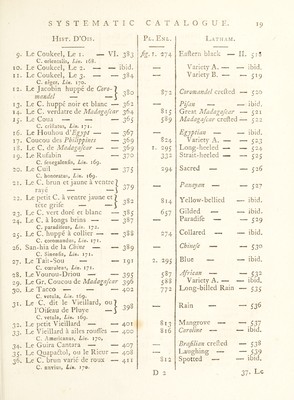 SYSTEMATIC CATALOGUE. 19
Hist. D'Ois. Pl. Enl. Latham.
9. Le Coukeel, Le 1. — VI. 383 fig. 1. 274 Eastern black — II. 518
C. orientalis, Lin. 168.
10. Le Coukeel, Le 2. — — ibid. Variety A. — — ibid.
11. Le Coukeel, Le 3. — — 384 Variety B. — — 519
C. niger, Lin. 170.
12. Le Jacobin huppé de Coro-mandel — 380 872 Coromandel crested — 520
13. Le C. huppé noir et blanc — 362 Pisan — — ibid.
14. Le C. verdatre de Madagascar 364 815 Great Madagascar — 521
15. Le Coua — — — 365 589 Madagascar crested — 522
C. cristatus, Lin. 171.
16. Le Houhou d'Egypt — — 367 Egyptian — — ibid.
17. Coucou des Philippines — 369 824 Variety A. — — 522
18. Le C. de Madagascar — — 369 1. 295 Long-heeled — — 524
19. Le Rufalbin — — 370 332 Strait-heeled — — 525
C. senegalensis, Lin. 169.
20. Le Cuil — — — 375 294 Sacred — — 526
C. honoratus, Lin. 169.
21. Le C. brun et jaune à ventre rayé — 379 Panayan — — 527
22. Le petit C. à ventre jaune et tête grise — 382 814 Yellow-bellied — ibid.
23. Le C. vert doré et blanc — 385 657 Gilded — — ibid.
24. Le C. à longs brins — — 387 Paradise — — 529
C. paradiseus, Lin. 172.
25. Le C. huppé à collier — — 388 274 Collared — — ibid.
C. coromandus, Lin. 171.
26. San-hia de la Chine — 389 Chinese — — 530
C. sinensis, Lin. 171.
27. Le Tait-Sou — — 391 2. 295 Blue — — ibid.
C. cæruleus, Lin. 171.
28. Le Vourou-Driou — — 395 587 African — — 532
29. Le Gr. Coucou de Madagascar 396 588 Variety A. — — ibid.
30. Le Tacco — — 402 772 Long-billed Rain — 535
C. vetula, Lin. 169.
31. Le C. dit le Vieillard, ou l'Oiseau de Pluye — 398 Rain — 536
C. vetula, Lin. 169.
32. Le petit Vieillard — — 401 813 Mangrove — — 537
33. Le Vieillard à ailes rousses — 400 816 Caroline — — ibid.
C. Americanus, Lin. 170.
34. Le Guira Cantara — — 407 Brasilian crested — 538
35. Le Quapactol, ou le Rieur — 408 Laughing — — 539
36. Le C. brun varié de roux — 411 812 Spotted — — ibid.
C. nævius, Lin. 170.
D 2 37. Le